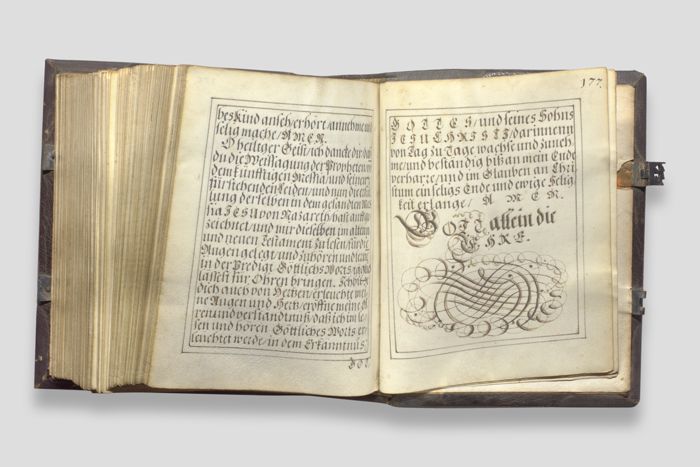 bes Kind anseh/erhört/annehme und
selig mache/AMEN.
O heiliger Geist/ich dancke dir/daß
du die Weissagung der Propheten von
dem künfftigen Messia/und seinem
fürstehenden Leiden/und nun die erfül-
lung derselben in dem gesandten Mes-
sia JESU von Nazareth/hast auffge-
zeichnet/und mir dieselben im alten
und neuen Testament zu lesen/für die
Augen gelegt/und zuhören und lernen
in der Predigt Göttlichs Worts
lassest für Ohren bringen.
dich auch von Hertzen/erleuchte mei-
ne Augen und Hertz/eröffne meine Oh-
ren und verständnuß/daß ich im le-
sen und hören Göttliches Worts er-
leuchtet werde/in dem Erkanntnuß
GOT
177.
GOTTES/und seines Sohns
JESU CHRISTI/darinnen
von Tag zu Tage wachse und zuneh-
me/und beständig biß an mein Ende
verharre/und im Glauben an Chri-
stum ein seligs Ende und ewige Selig-
keit erlange/AMEN.
GOTT allein die
EHRE.